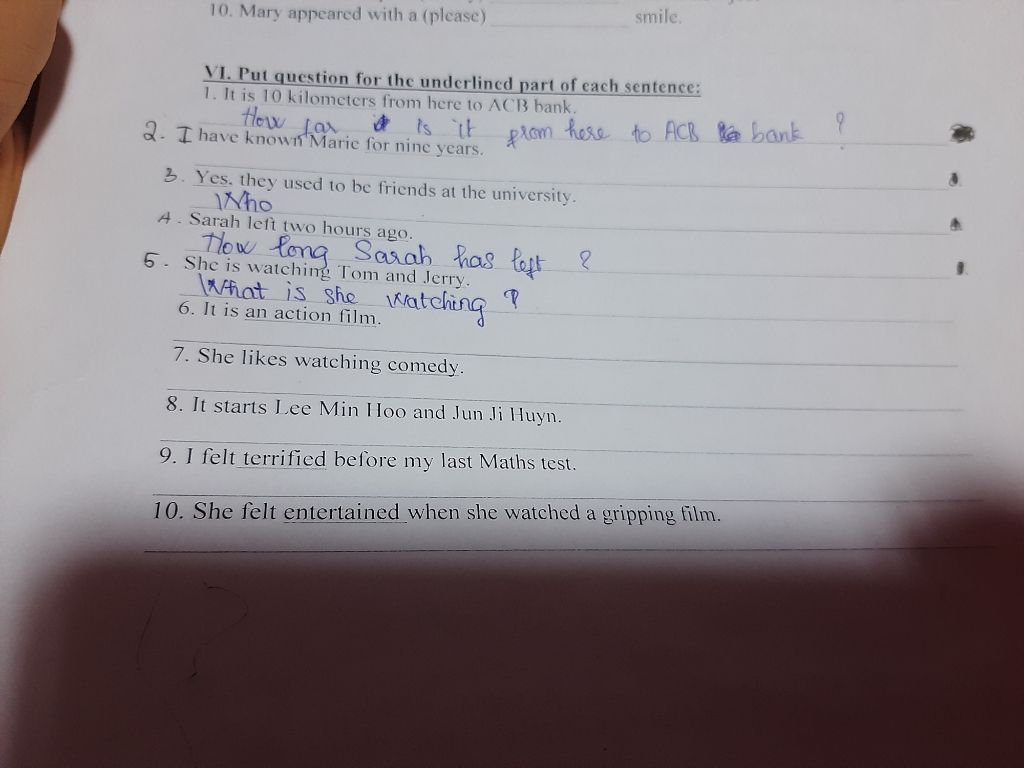 10. Mary appeared with a (please) ____________ smile.
VI. Put question for the underlined part of each sentence:
1. It is 10 kilometers from here to ACB bank.
How far is it from here to ACB bank ?
2. I have known Marie for nine years.
3. Yes, they used to be friends at the university.
Who
4. Sarah left two hours ago.
How long Sarah has left ?
5. She is watching Tom and Jerry.
What is she watching ?
6. It is an action film.
7. She likes watching comedy.
8. It starts Lee Min Hoo and Jun Ji Huyn.
9. I felt terrified before my last Maths test.
10. She felt entertained when she watched a gripping film.